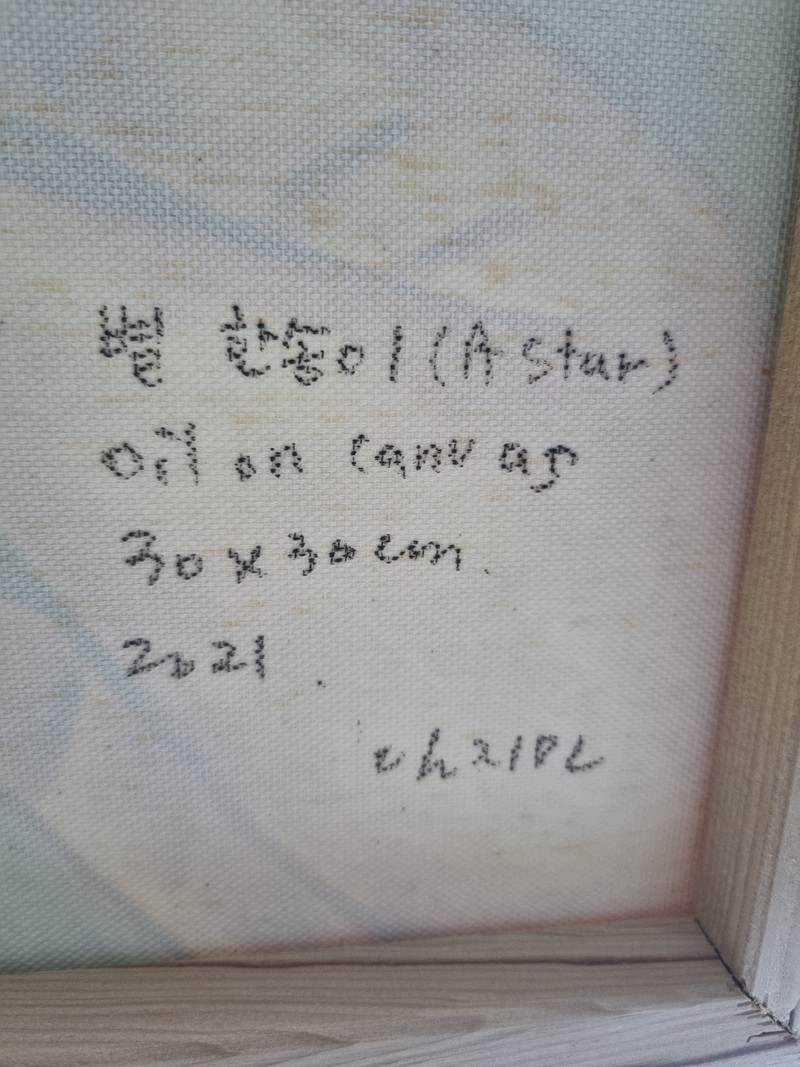 별 한송이 (A star)
oil on canvas
30 x 30 cm.
2021